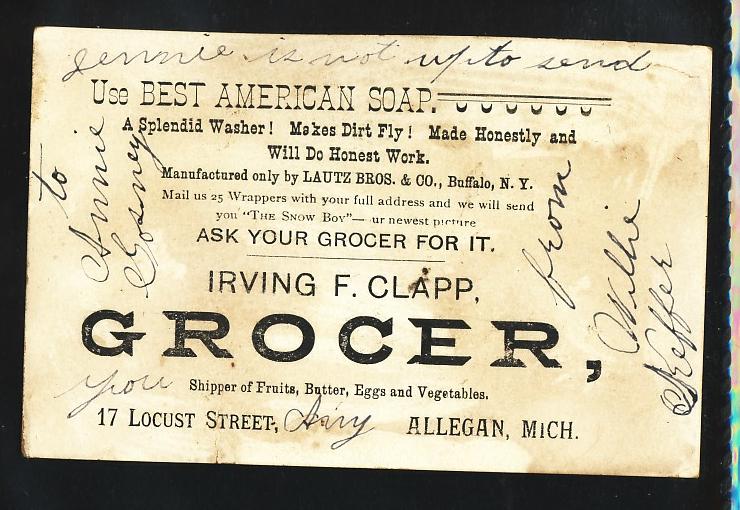 Jennie is not up to send
Use BEST AMERICAN SOAP.
A Splendid Washer! Makes Dirt Fly! Made Honestly and
Will Do Honest Work.
Manufactured only by LAUTZ BROS. & CO., Buffalo, N. Y.
Mail us 25 Wrappers with your full address and we will send
you "THE SNOW BOY"— ur newest picture
ASK YOUR GROCER FOR IT.
IRVING F. CLAPP,
GROCER,
you
Shipper of Fruits, Butter, Eggs and Vegetables.
17 LOCUST STREET, Any ALLEGAN, MICH.
to
Annie
Gosney
from
Willie
Keffer